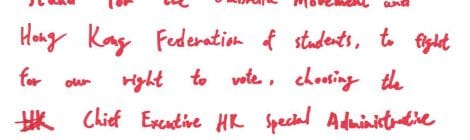 stand for the Umbrella Movement and
Hong Kong Federation of students, to fight
for our right to vote, choosing the
Chief Excutive HK Special Administrative